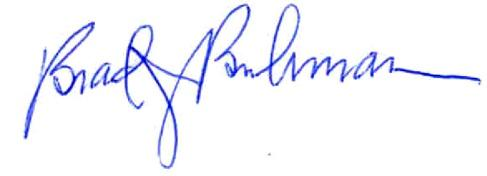 Brady Buhman